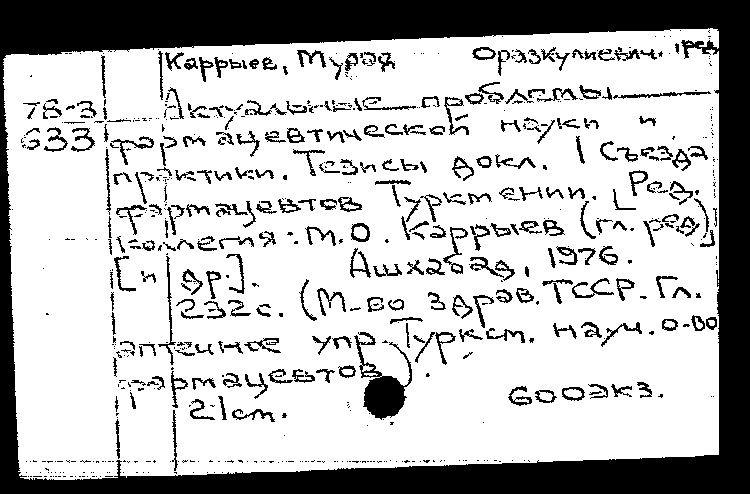 Каррыев, Мурад Оразкулиевич. ред
78-3 Актуальные проблемы
633 фармацевтической науки и
практики. Тезисы докл. I Съезда
фармацевтов Туркмении. [Ред.
коллегия: М.О. Каррыев (гл. ред)]
[и др.]. Ашхабад, 1976.
232с. (М-во здрав. ТССР. Гл.
аптечное упр. Туркм. науч. о-во
фармацевтов).
21см. 600экз.